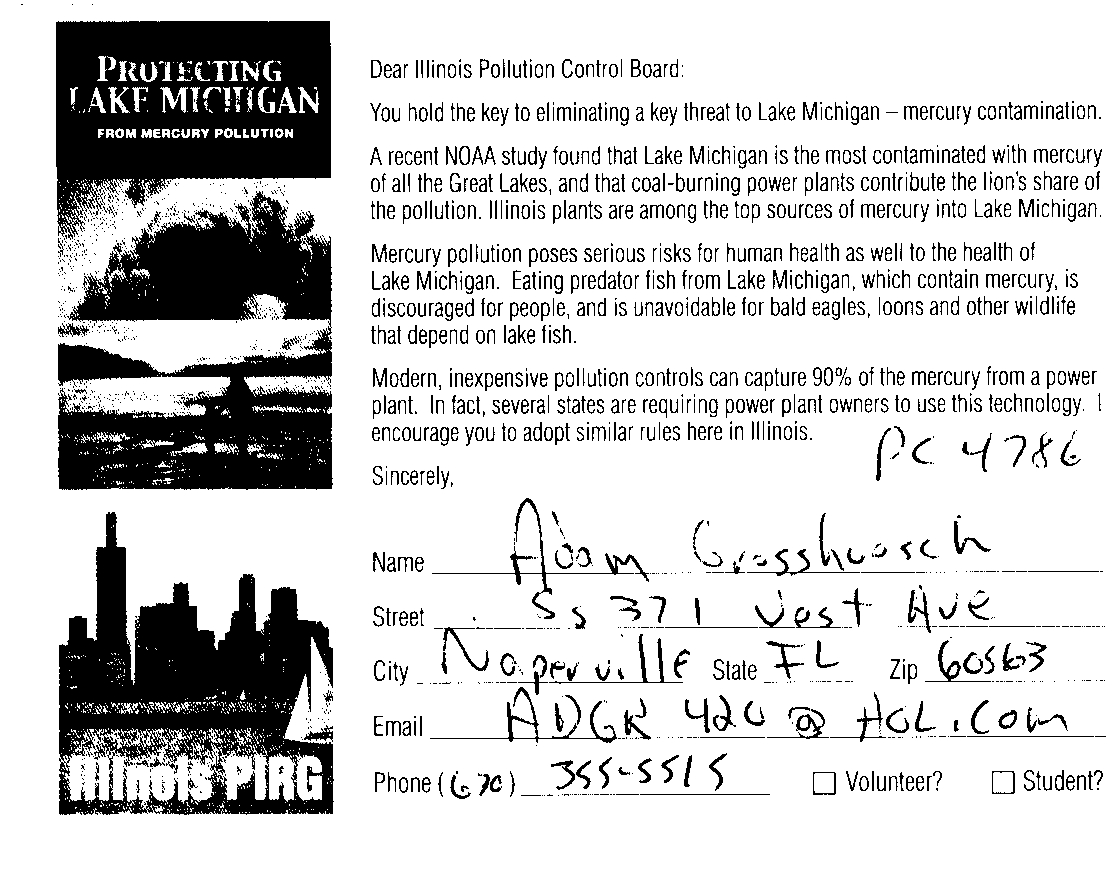 PROTECTING
LAKE MICHIGAN
FROM MERCURY POLLUTION
Dear Illinois Pollution Control Board:
You hold the key to eliminating a key threat to Lake Michigan – mercury contamination.
A recent NOAA study found that Lake Michigan is the most contaminated with mercury
of all the Great Lakes, and that coal-burning power plants contribute the lion's share of
the pollution. Illinois plants are among the top sources of mercury into Lake Michigan.
Mercury pollution poses serious risks for human health as well to the health of
Lake Michigan. Eating predator fish from Lake Michigan, which contain mercury, is
discouraged for people, and is unavoidable for bald eagles, loons and other wildlife
that depend on lake fish.
Modern, inexpensive pollution controls can capture 90% of the mercury from a power
plant. In fact, several states are requiring power plant owners to use this technology. I
encourage you to adopt similar rules here in Illinois.
PC 4786
Sincerely,
Name Adam
Street 371 Vest Ave
City Naperville State IL Zip 60563
Email
Phone (630) 355-5515
Volunteer? Student?
Illinois PIRG